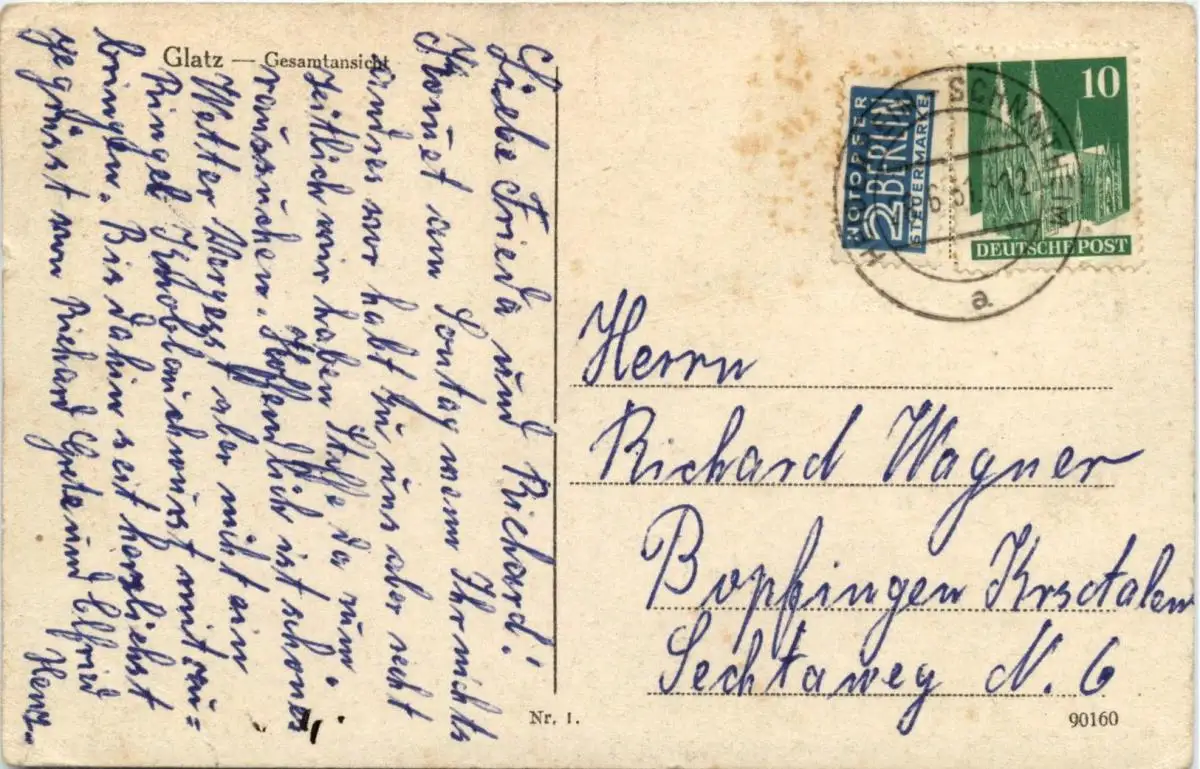 Glatz — Gesamtansicht
Liebe Frieda und Richard!
Komet am Sontag wenn Ihr nichts
andres vor habt zu uns aber recht
zeitlich wir haben Stoffe da zum
raussuchen. Hoffendlich ist schones
Wetter Vergess aber nicht ein
Ringel Knoblauchwurst mit zu=
bringen. Bis dahin seit herzliehst
gegüsst von Richard Grete und Elfried
Henz.
NOTOPFER
2 BERLIN
STEUERMARKE
10
DEUTSCHE POST
SCHNAITHEIM
a
Herrn
Richard Wagner
Bopfingen Krsctalen
Sechtaweg N. 6
Nr. 1.
90160